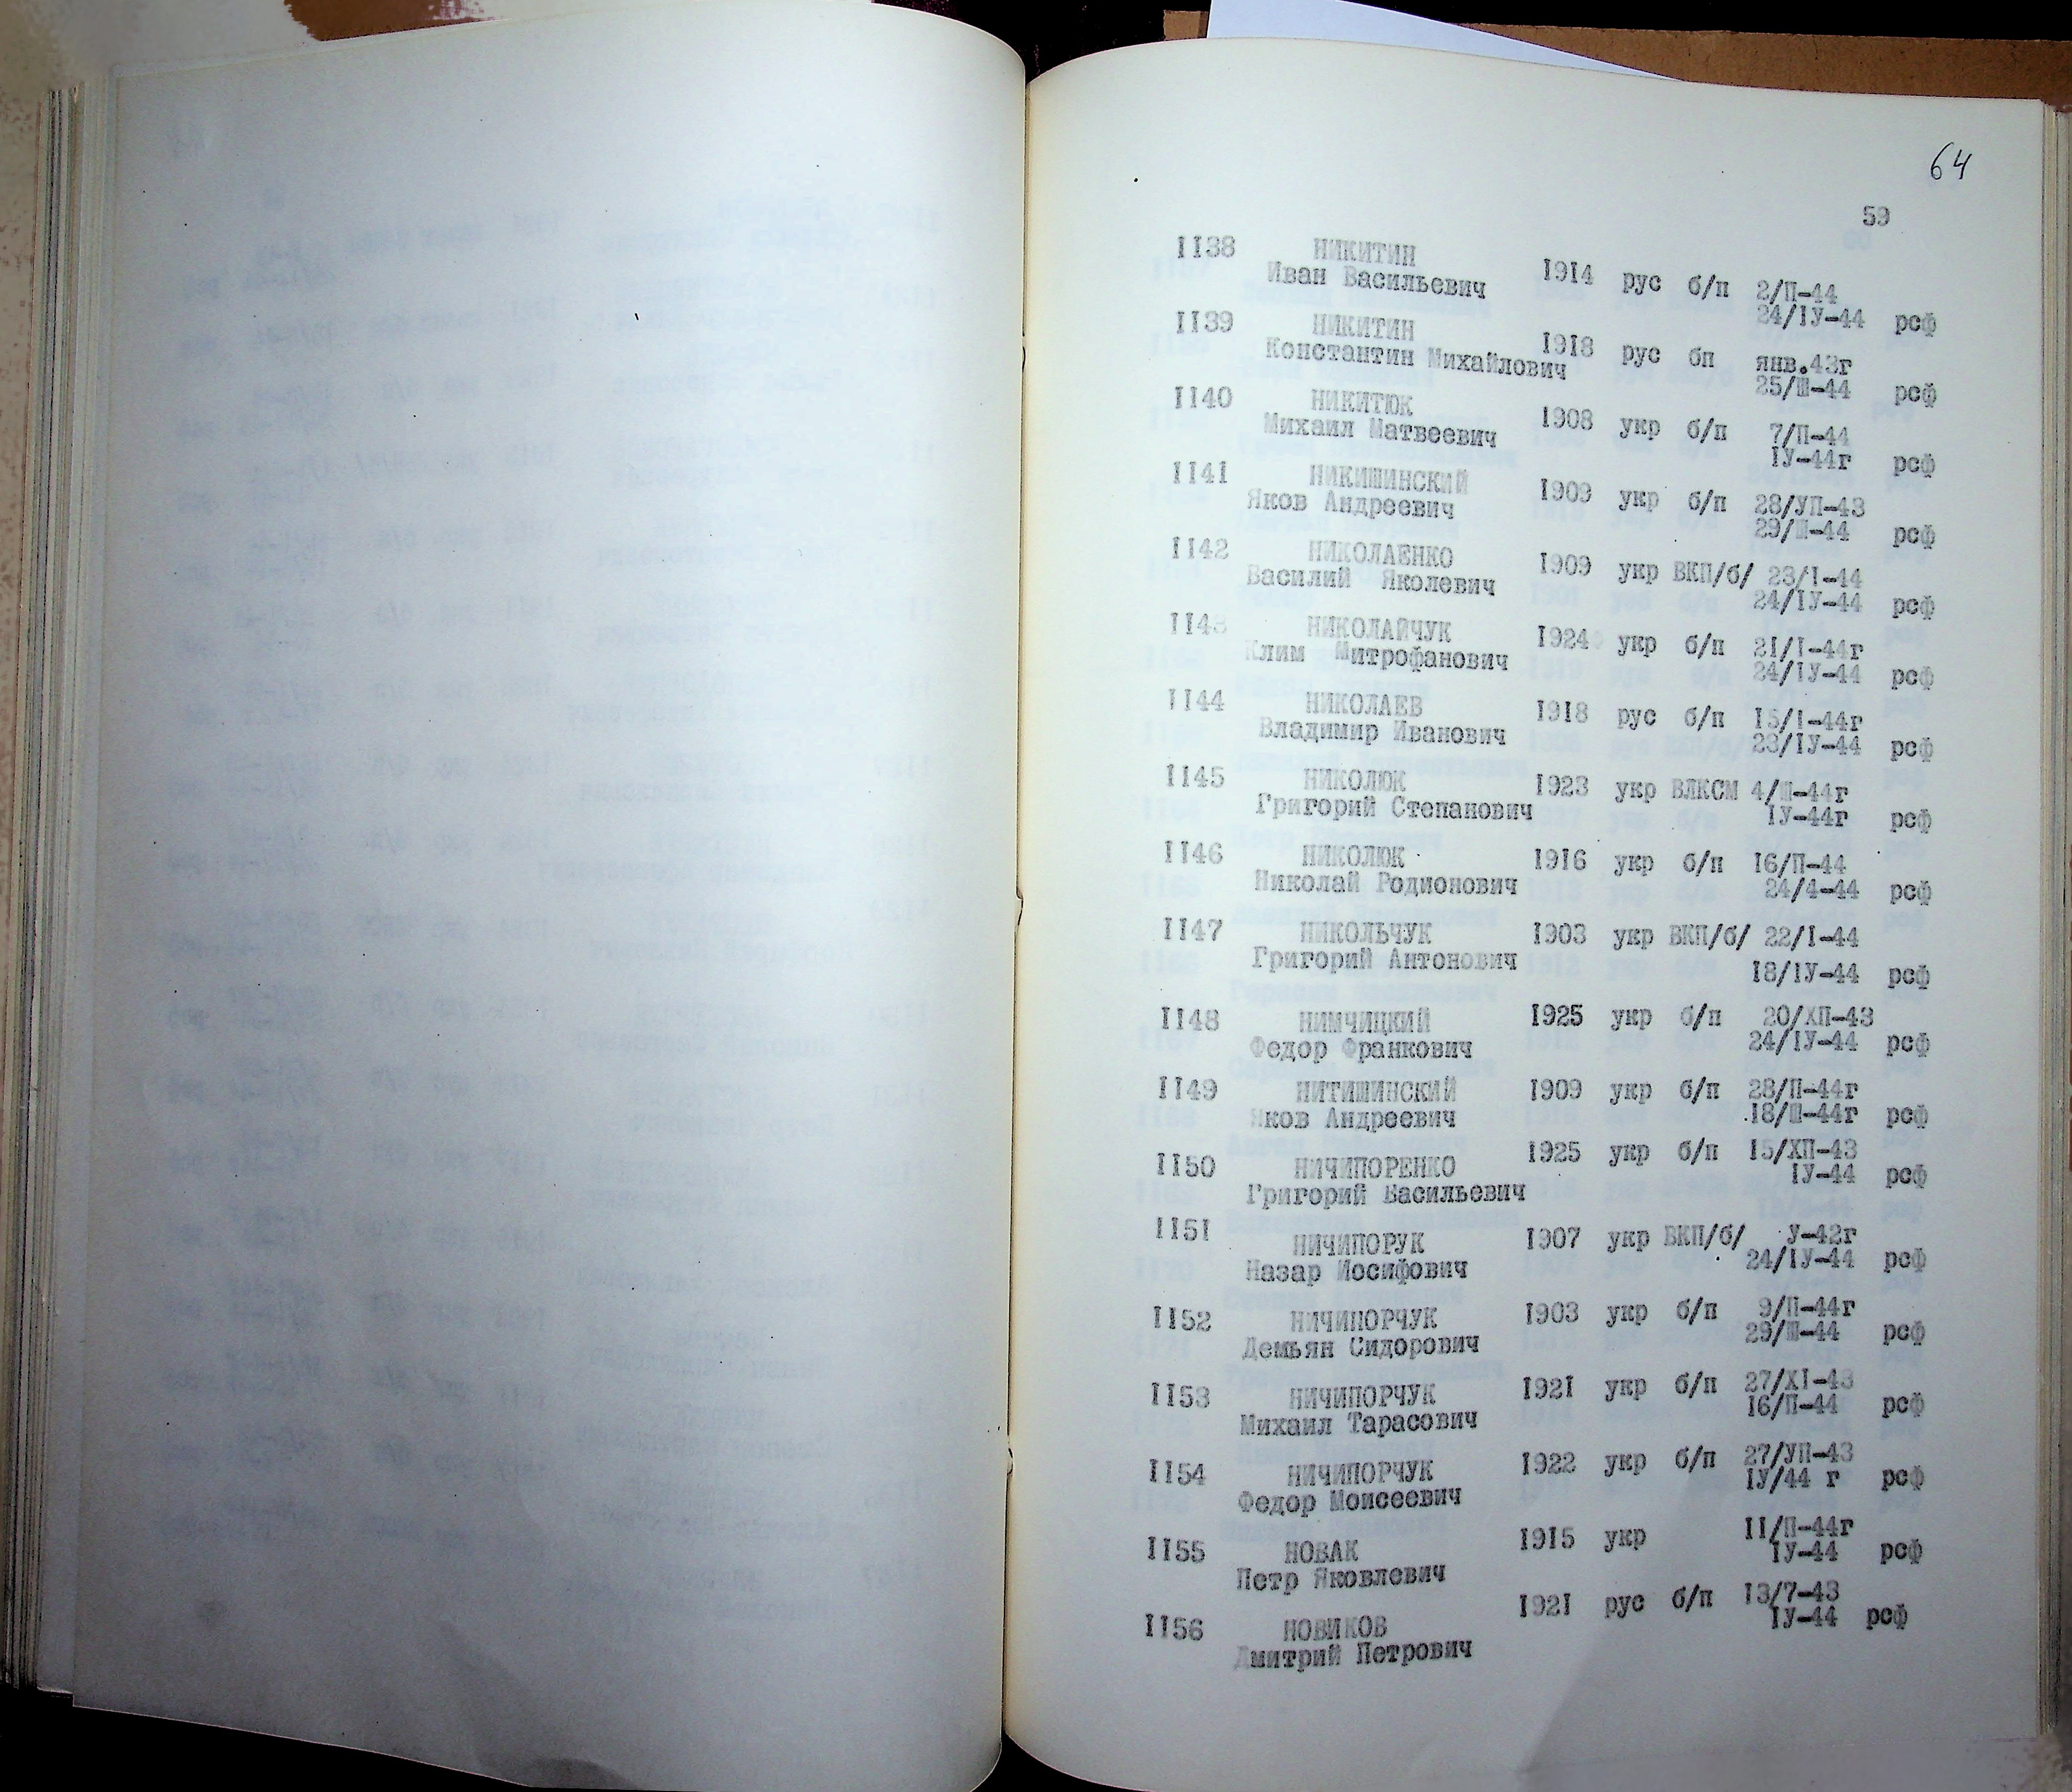 64
59
1138 НИКИТИН
Иван Васильевич 1914 рус б/п 2/П-44
24/IУ-44 рсф
1139 НИКИТИН
Константин Михайлович 1918 рус бп янв.43г
25/Ш-44 рсф
1140 НИКИТЮК
Михаил Матвеевич 1908 укр б/п 7/П-44
IУ-44г рсф
1141 НИКИШИНСКИЙ
Яков Андреевич 1909 укр б/п 28/УП-43
29/Ш-44 рсф
1142 НИКОЛАЕНКО
Василий Яколевич 1909 укр ВКП/б/ 23/I-44
24/IУ-44 рсф
1143 НИКОЛАЙЧУК
Клим Митрофанович 1924 укр б/п 21/I-44г
24/IУ-44 рсф
1144 НИКОЛАЕВ
Владимир Иванович 1918 рус б/п 15/I-44г
23/IУ-44 рсф
1145 НИКОЛЮК
Григорий Степанович 1923 укр ВЛКСМ 4/Ш-44г
IУ-44г рсф
1146 НИКОЛЮК 1916 укр б/п 16/П-44
Николай Родионович 24/4-44 рсф
1147 НИКОЛЬЧУК 1903 укр ВКП/б/ 22/I-44
Григорий Антонович
18/IУ-44 рсф
1148 НИМЧИЦКИЙ 1925 укр б/п 20/ХП-43
Федор Франкович 24/IУ-44 рсф
1149 НИТИШИНСКИЙ 1909 укр б/п 28/П-44г
Яков Андреевич 18/Ш-44г рсф
1150 НИЧИПОРЕНКО 1925 укр б/п 15/ХП-43
Григорий Васильевич IУ-44 рсф
1151 НИЧИПОРУК 1907 укр ВКП/б/ У-42г
Назар Иосифович 24/IУ-44 рсф
1152 НИЧИПОРЧУК 1903 укр б/п 9/П-44г
Демьян Сидорович 29/Ш-44 рсф
1153 НИЧИПОРЧУК 1921 укр б/п 27/ХI-43
Михаил Тарасович 16/П-44 рсф
1154 НИЧИПОРЧУК 1922 укр б/п 27/УП-43
Федор Моисеевич IУ/44 г рсф
1155 НОВАК 1915 укр 11/П-44г
Петр Яковлевич IУ-44 рсф
1156 НОВИКОВ 1921 рус б/п 13/7-43
Дмитрий Петрович IУ-44 рсф